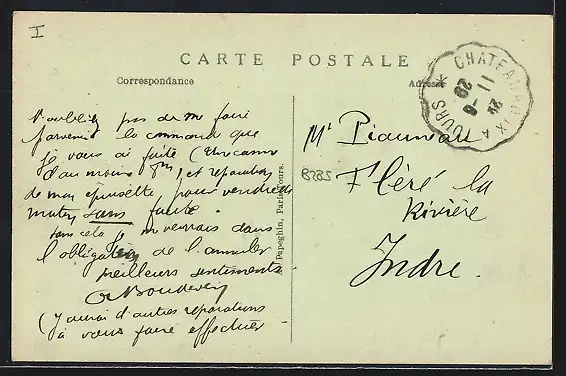 I
CARTE POSTALE
Correspondance
Adresse
CHATEAUROUX A TOURS *
11 - 6
24
29
N'oubliez pas de me faire
parvenir la commande que
je vous ai faite (
d'au moins 9m), et reparation
de mon épuisette pour vendredi
matin sans faute.
sans cela je me verrais dans
l'obligation de l'annuler
Meilleurs sentiments
(j'aurai d'autres réparations
à vous faire effectuer
Papeghin, Paris-Tours.
Mr Piauneau
8285
Fléré la
Rivière
Indre.